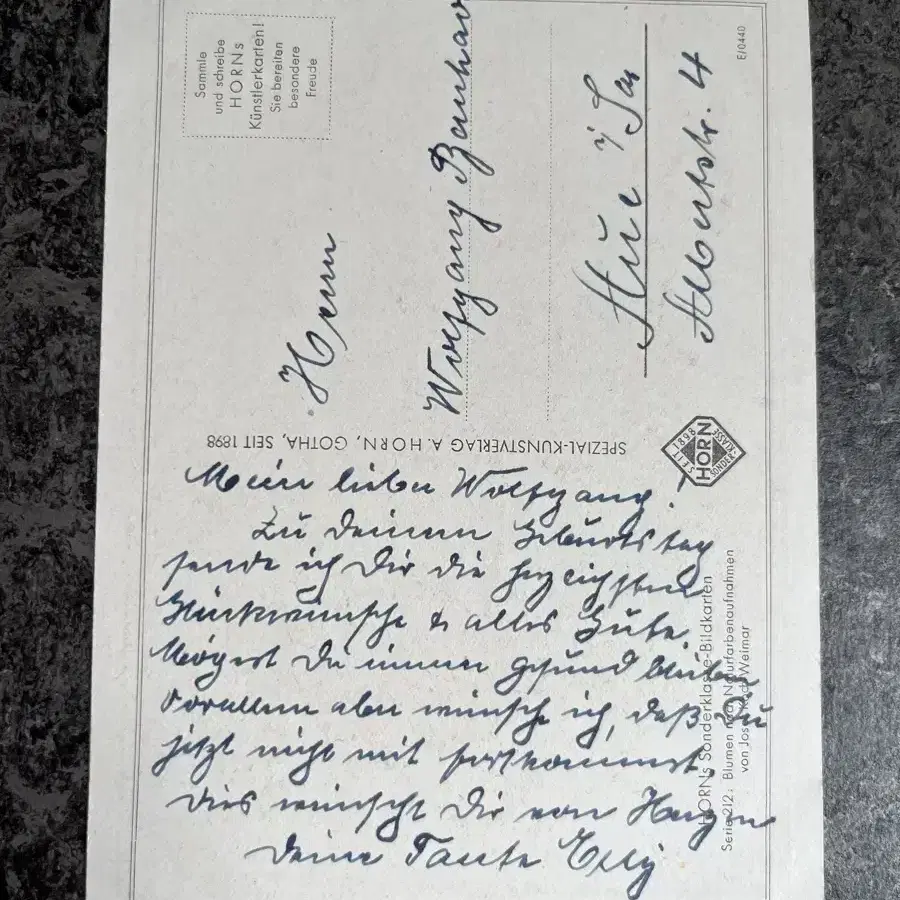 Sammle
und schreibe
HORNs
Künstlerkarten!
Sie bereiten
besondere
Freude
E/0440
Herrn
Wolfgang
Aue i/Sa
Albertstr. 4
SPEZIAL-KUNSTVERLAG A. HORN, GOTHA, SEIT 1898
SEIT 1898
HORN
SONDER-KLASSE
HORNs Sonderklasse-Bildkarten
Serie 212: Blumen nach Naturfarbenaufnahmen
von Weimar
Mein lieber Wolfgang!
Zu Deinem Geburtstag
sende ich Dir die herzlichsten
Glückwünsche & alles Gute.
Mögest Du immer gesund bleiben
vorallem aber wünsche ich, daß Du
jetzt nicht mit fortkommst.
Dies wünscht Dir von Herzen
Deine Tante Elly